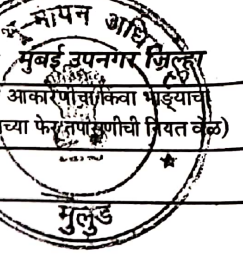 मापन अधि
मुंबई उपनगर जिल्हा
आकारणीचा किंवा भाड्याचा
च्या फेर तपासणीची नियत वेळ)
मुलुंड